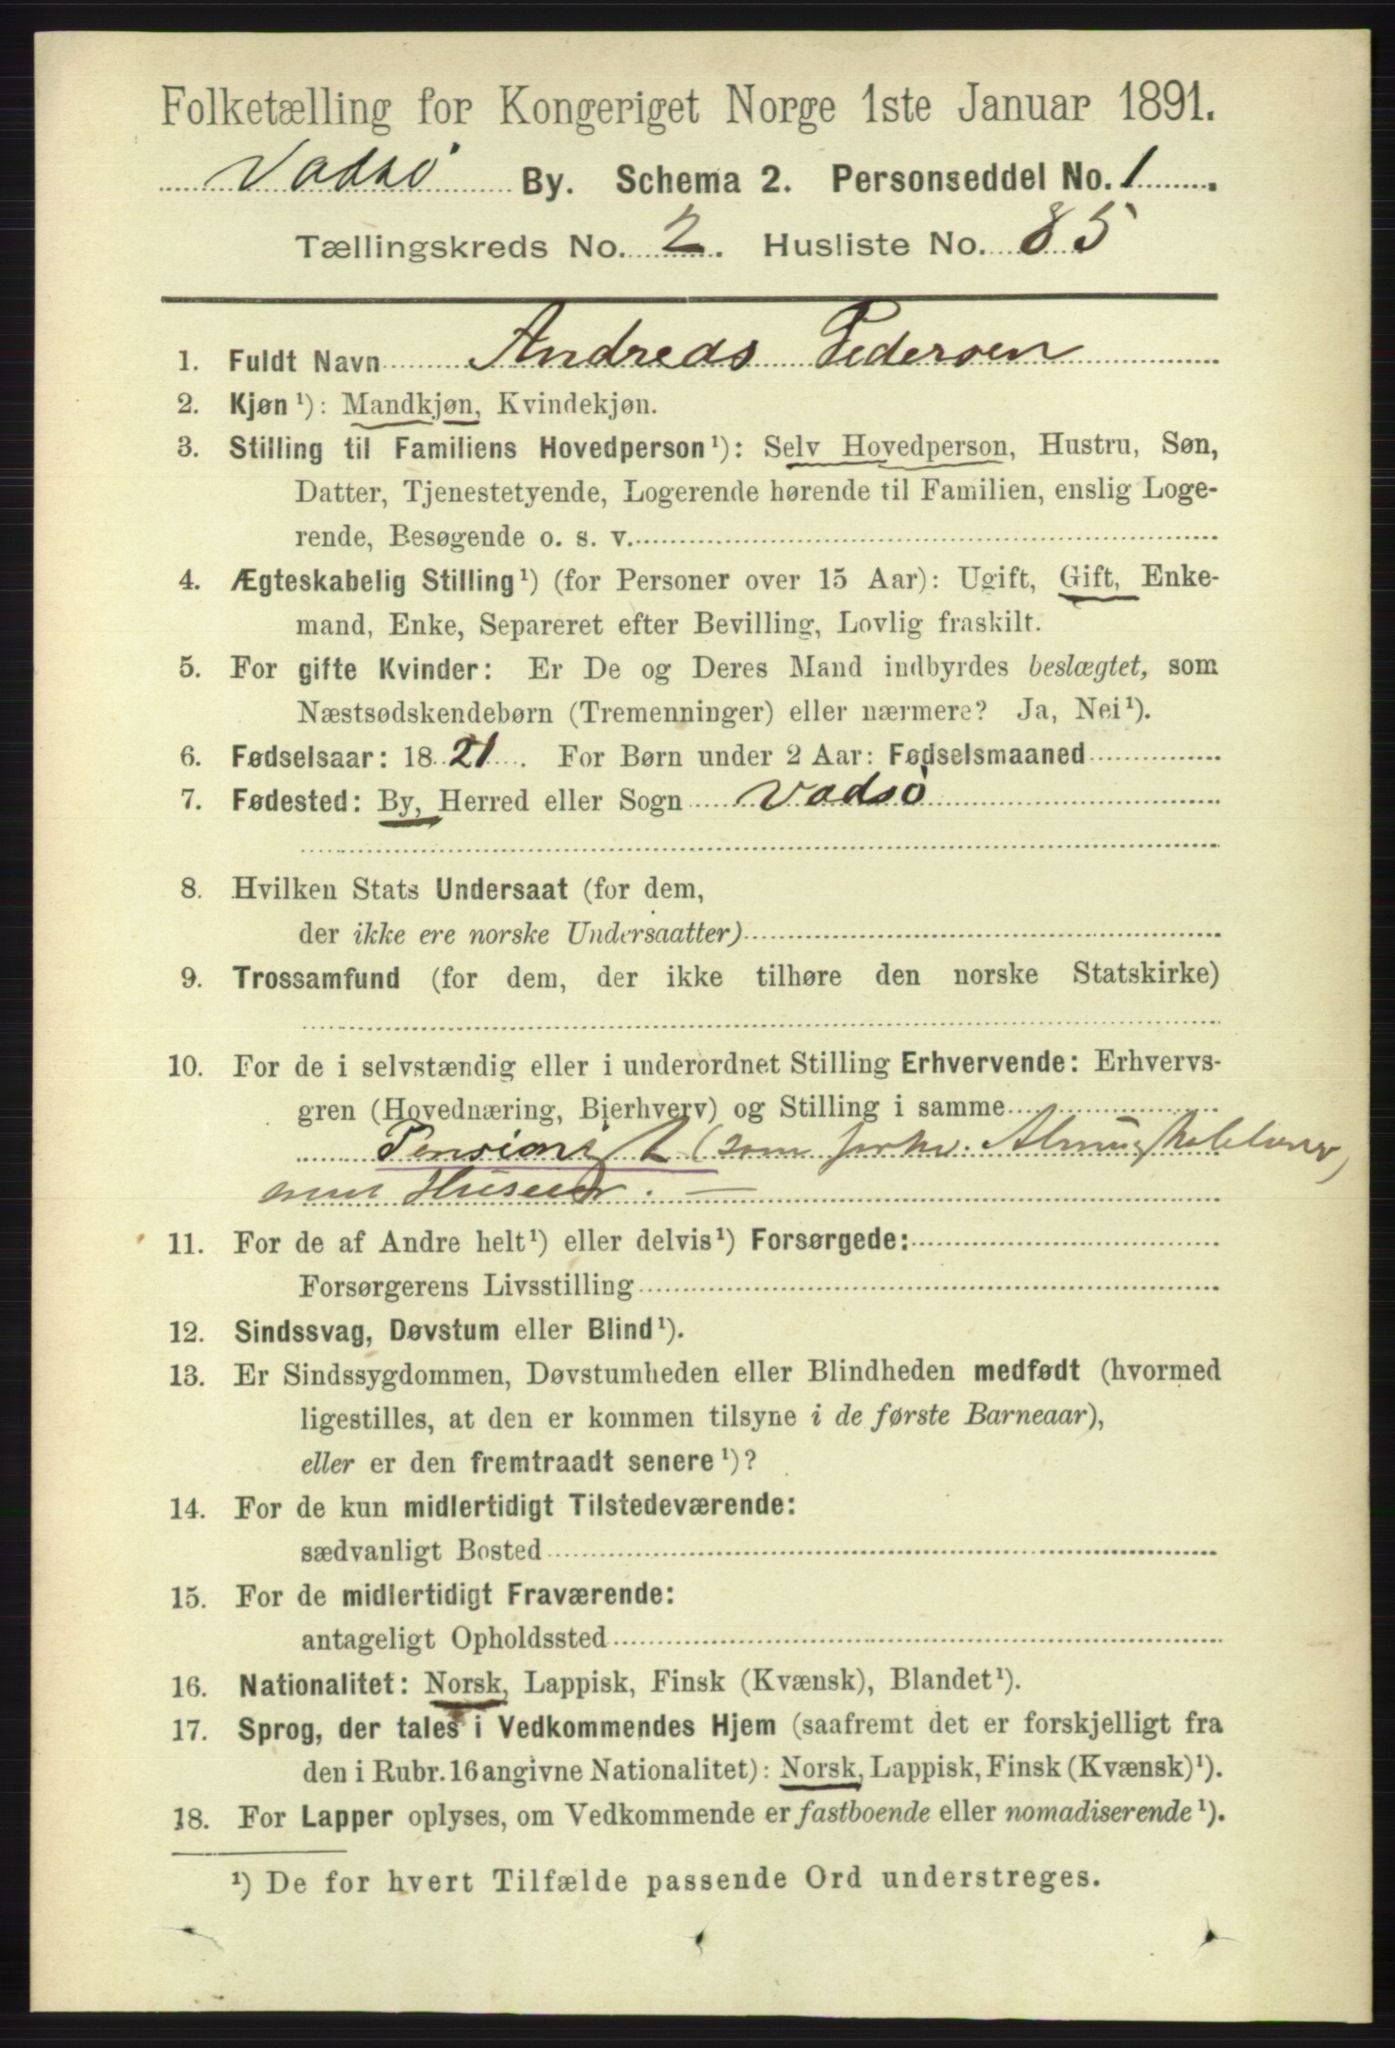 Folketælling for Kongeriget Norge 1ste Januar 1891.
Vadsø By. Schema 2. Personseddel No. 1.
Tællingskreds No. 2. Husliste No. 85
1. Fuldt Navn Andreas Pedersen
2. Kjøn ¹): Mandkjøn, Kvindekjøn.
3. Stilling til Familiens Hovedperson ¹): Selv Hovedperson, Hustru, Søn,
Datter, Tjenestetyende, Logerende hørende til Familien, enslig Loge-
rende, Besøgende o. s. v.
4. Ægteskabelig Stilling ¹) (for Personer over 15 Aar): Ugift, Gift, Enke-
mand, Enke, Separeret efter Bevilling, Lovlig fraskilt.
5. For gifte Kvinder: Er De og Deres Mand indbyrdes beslægtet, som
Næstsødskendebørn (Tremenninger) eller nærmere? Ja, Nei ¹).
6. Fødselsaar: 1821. For Børn under 2 Aar: Fødselsmaaned
7. Fødested: By, Herred eller Sogn Vadsø
8. Hvilken Stats Undersaat (for dem,
der ikke ere norske Undersaatter)
9. Trossamfund (for dem, der ikke tilhøre den norske Statskirke)
10. For de i selvstændig eller i underordnet Stilling Erhvervende: Erhvervs-
gren (Hovednæring, Bierhverv) og Stilling i samme
Pensionist (som
11. For de af Andre helt ¹) eller delvis ¹) Forsørgede:
Forsørgerens Livsstilling
12. Sindssvag, Døvstum eller Blind ¹).
13. Er Sindssygdommen, Døvstumheden eller Blindheden medfødt (hvormed
ligestilles, at den er kommen tilsyne i de første Barneaar),
eller er den fremtraadt senere ¹)?
14. For de kun midlertidigt Tilstedeværende:
sædvanligt Bosted
15. For de midlertidigt Fraværende:
antageligt Opholdssted
16. Nationalitet: Norsk, Lappisk, Finsk (Kvænsk), Blandet ¹).
17. Sprog, der tales i Vedkommendes Hjem (saafremt det er forskjelligt fra
den i Rubr. 16 angivne Nationalitet): Norsk, Lappisk, Finsk (Kvænsk) ¹).
18. For Lapper oplyses, om Vedkommende er fastboende eller nomadiserende ¹).
¹) De for hvert Tilfælde passende Ord understreges.